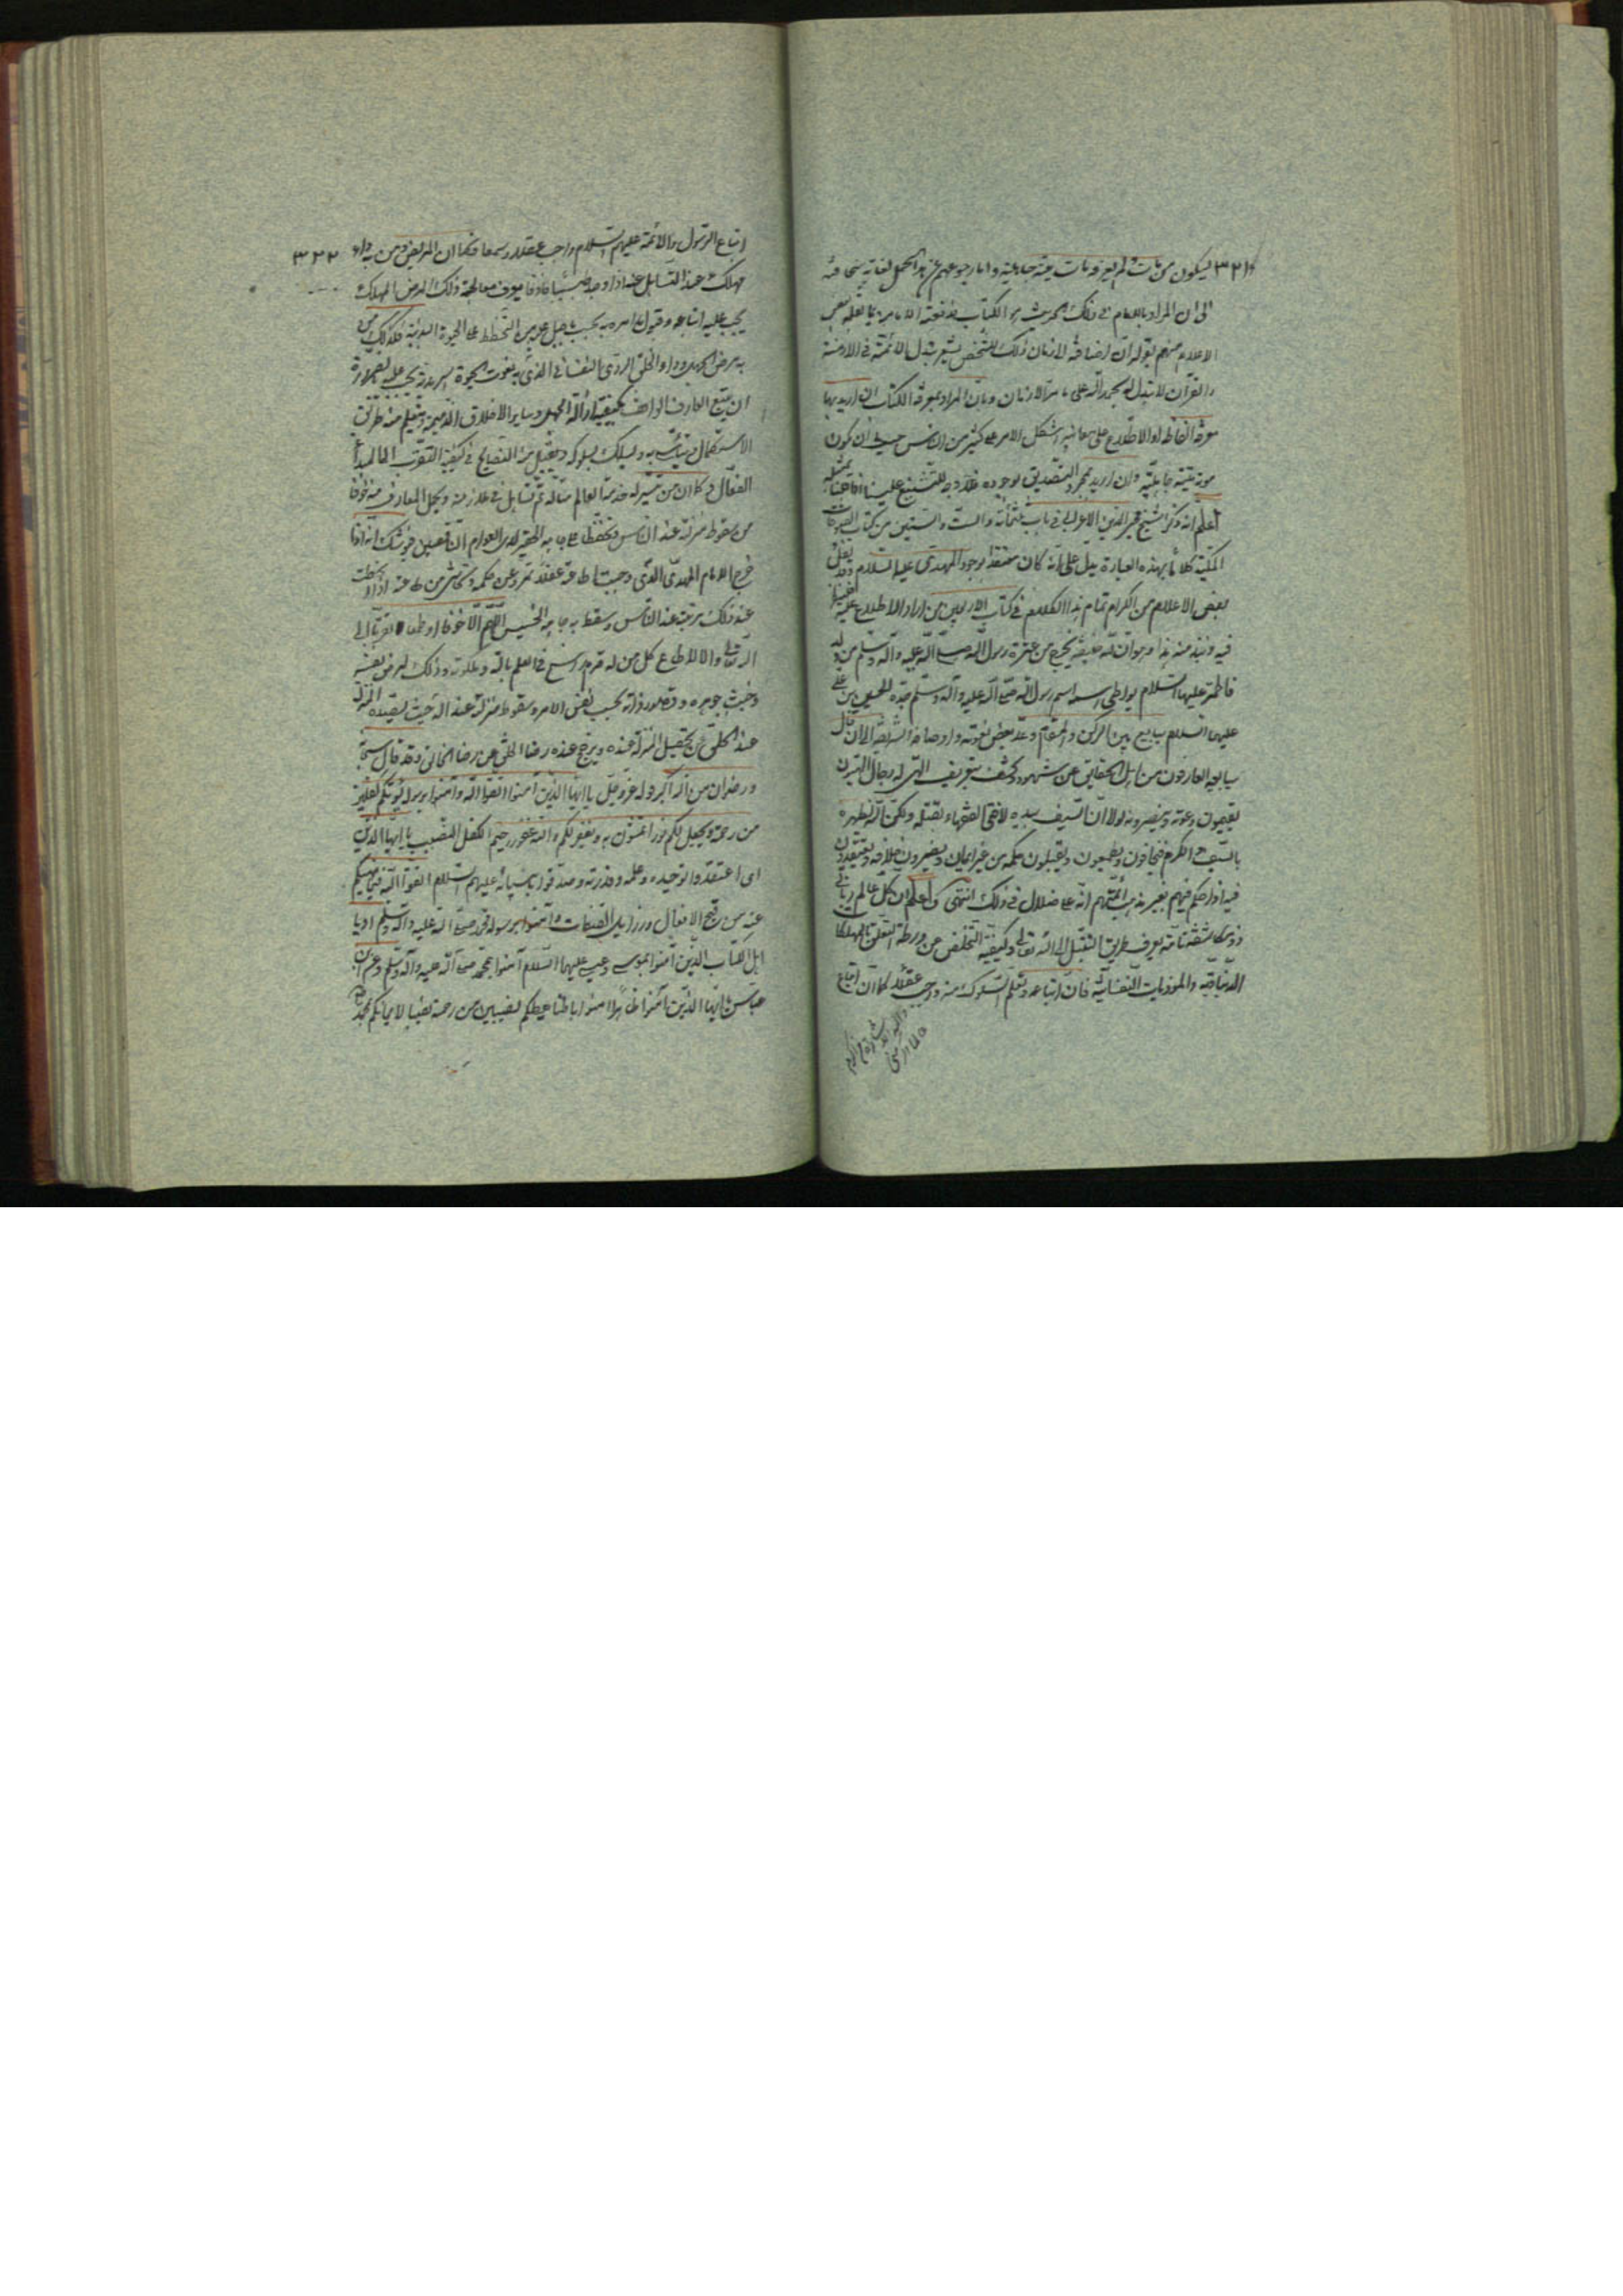 ٣٢١ ليكون من مات ولم يعرفه مات ميتة جاهلية واما رجوعهم عن هذا الحمل لغاية سخافته
الى ان المراد بالامام في ذلك الحديث هو الكتاب فدفعته الامامية بما نقله بعض
الاعلام منهم بقوله ان اضافة الازمان ذلك الشخص يشعر بتبدل الائمة في الازمنة
والقرآن لا تبدل له بحمد الله على مر الازمان وبان المراد بمعرفة الكتاب ان اريد بها
معرفة الفاظه او الاطلاع على معانيه اشكل الامر على كثير من الناس حيث ان يكون
موته ميتة جاهلية وان اريد مجرد التصديق بوجوده فلا وجه للتشنيع علينا اذا قلنا بمثله
اعلم انه ذكر الشيخ محيى الدين الاعرابي في باب ثلثمائة والست والستين من كتاب الفتوحات
المكية كلاما بهذه العبارة يدل على انه كان معتقدا بوجود المهدى عليه السلام وقد نقل
بعض الاعلام من الكرام تمام هذا الكلام في كتاب الاربعين من اراد الاطلاع عليه
فيه ونبذ منه هذا وهو ان لله خليفة يخرج من عترة رسول الله صلى الله عليه وآله وسلم من ولد
فاطمة عليها السلام يواطى اسمه اسم رسول الله صلى الله عليه وآله وسلم جده الحسين بن على
عليهما السلام يبايع بين الركن والمقام وعد بعض نعوته واوصافه الشريفة الى ان قال
يبايعه العارفون من اهل الحقايق عن شهود وكشف بتعريف الهى له رجال الهيون
يقيمون دعوته وينصرونه لولا ان السيف بيده لافتى الفقهاء بقتله ولكن الله يظهره
بالسيف والكرم فيخافون ويطمعون ويقبلون حكمه من غير ايمان ويضمرون خلافه ويعتقدون
فيه اذا حكم فيهم بغير مذهب ائمتهم انه على ضلال في ذلك انتهى واعلم ان كل عالم ربانى
ذو مكاشفة تامة يعرف طريق التبتل الى الله تعالى وكيفية التخلص من ورطة التعلق بالمهلكات
الدنياوية والموذيات النفسانية فان اتباعه وتعلم السلوك منه واجب عقلا كما ان اتباع
اتباع الرسول والائمة عليهم السلام واجب عقلا وسمعا فكما ان المريض ومن به داء ٣٢٢
مهلك عند التساهل عنه اذا وجد طبيبا حاذقا يعرف معالجة ذلك المرض المهلك
يجب عليه اتباعه وقبول ما امره به بحسب ما جبل عليه من التحفظ على الحيوة البدنية فكذلك من
به مرض الجهل وداء الخلق الردى النفسانى الذى به تفوت الحيوة السرمدية يجب عليه بالضرورة
ان يتبع العارف الواقف بكيفية ازالة الجهل وساير الاخلاق الذميمة ويتعلم منه طريق
الاستكمال ويتأسى به ويسلك سلوكه ويقبل منه النصايح في كيفية التقرب الى المبدأ
الفعال وكما ان من تيسر له خدمة عالم متأله ثم تساهل في ملازمته ويحل المعارف منه خوفا
من سقوط منزلته عند الناس وتحفظا على جاهه الحقير لدى العوام الناقصين فلا شك انه اذا
خرج الامام المهدى الذى وجبت اطاعته عقلا تمرد عن حكمه وتحاشى من طاعته اذا انحطت
عند ذلك مرتبته عند الناس وسقط به جاهه الخسيس اللهم الا خوفا او طمعا لا تقربا الى
الله تعالى والا لاطاع كل من له قدم راسخ في العلم بالله وملكوته وذلك لمرض نفسه
وخبث جوهره وقصور ذاته بحسب نفس الامر وسقوط منزلته عند الله حيث تقيده المنزلة
عند الخلق عن تحصيل المنزلة عنده ويرجح عنده رضا الخلق عن رضا الخالق وقد قال سبحانه
ورضوان من الله اكبر قوله عز وجل يا ايها الذين آمنوا اتقوا الله وآمنوا برسوله يؤتكم كفلين
من رحمته ويجعل لكم نورا تمشون به ويغفر لكم والله غفور رحيم الكفل النصيب يا ايها الذين
اى اعتقدوا توحيده وعلمه وقدرته وصدقوا بانبيائه عليهم السلام اتقوا الله فيما نهيكم
عنه من قبيح الافعال ورذايل الصفات وآمنوا برسوله محمد صلى الله عليه وآله وسلم او يا
اهل الكتاب الذين آمنوا بموسى وعيسى عليهما السلام آمنوا بمحمد صلى الله عليه وآله وسلم وعن ابن
عباس يا ايها الذين آمنوا ظاهرا آمنوا باطنا يعطكم نصيبين من رحمته نصيبا لايمانكم بمحمد